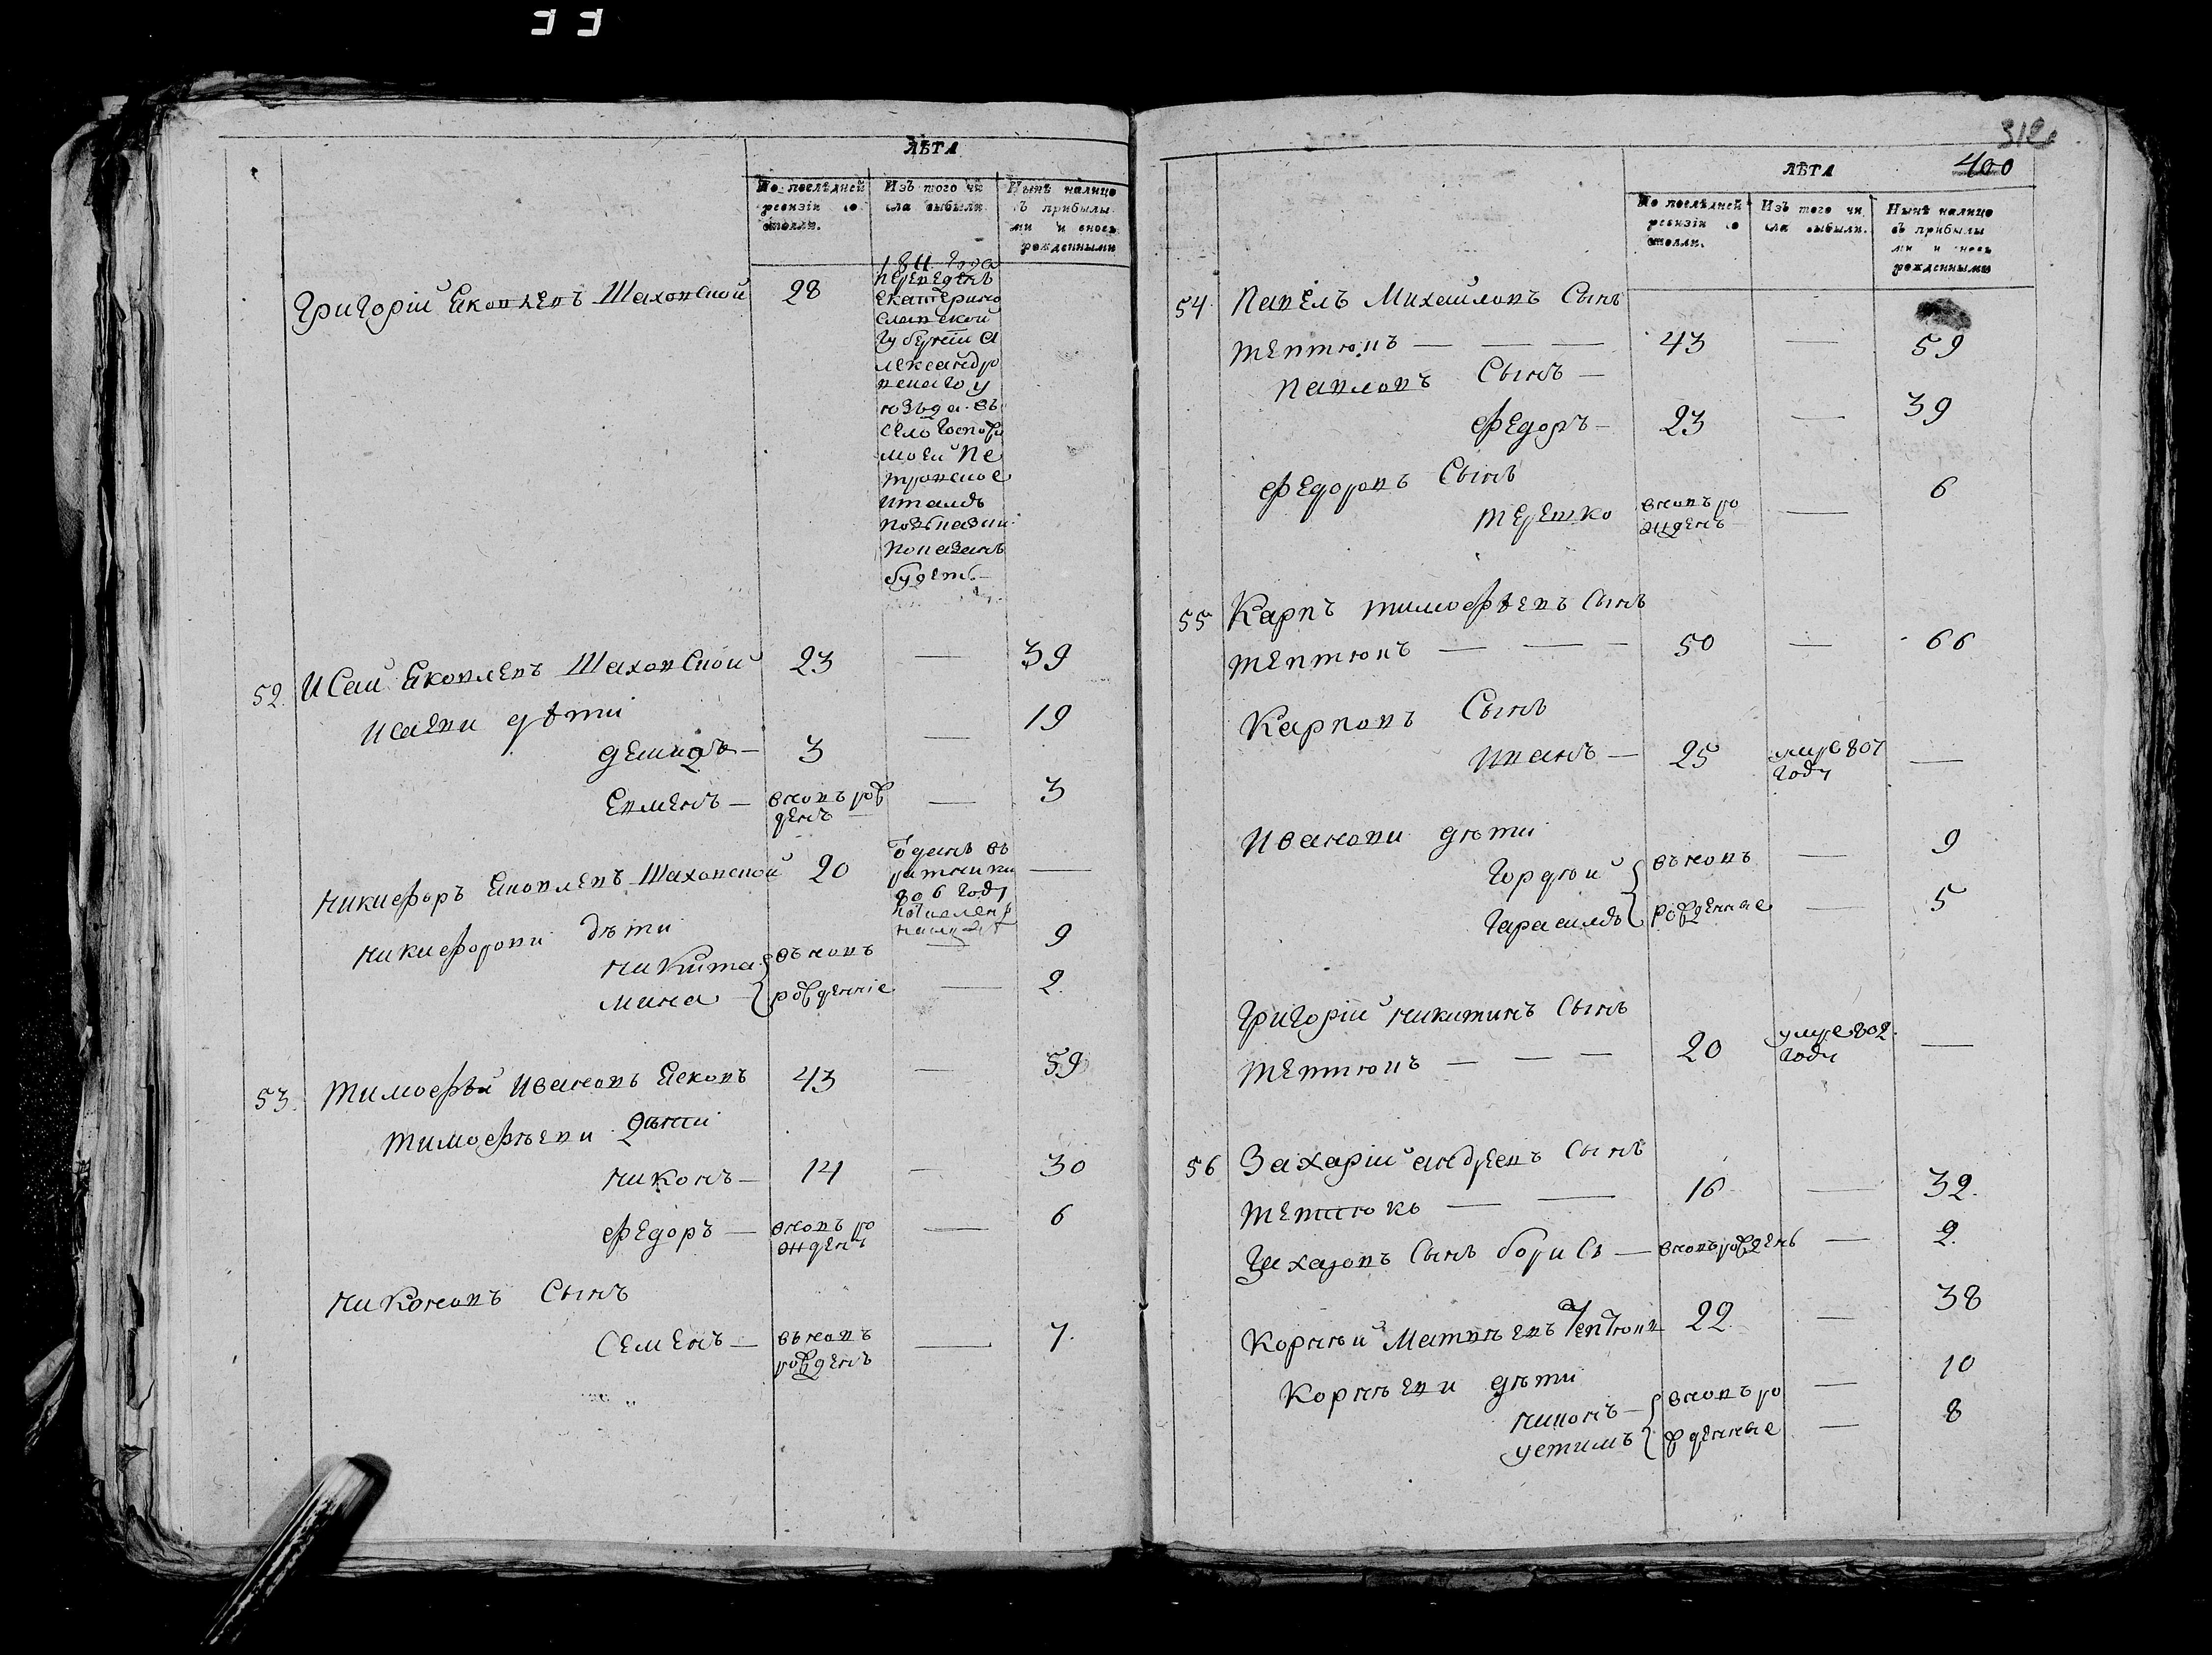 ЛѢТА
По послѣдней ревизіи состояло.
Изъ того числа выбыли
Нынѣ налицо съ прибылыми и вновь рожденными
Григорій Яковлевъ Шаховской 28
1811 года
переведенъ
екатерино
славской
губерніи а
лександро
вскаго у
ѣзда въ
село Господи
моей Пе
тровское
и тамъ
по ревизіи
показанъ
будетъ
52. Исай Яковлевъ Шаховской 23 — 39
Исаеви дѣти
Демидъ — 3 — 19
Евменъ — вновь рожденъ — 3
Никифоръ Яковлевъ Шаховской 20
отданъ въ
ратники
806 году
—
Никифорови дѣти
Никита вновь 9
Мина рожденніе — 2.
53. Тимофѣй Ивановъ Ясковъ 43 — 59
Тимофѣеви Дѣти
Никонъ — 14 — 30
Федоръ — вновь рожденъ — 6
Никоновъ Сынъ
Семенъ — вновь рожденъ — 7.
312
400
ЛѢТА
По послѣдней ревизіи состояло.
Изъ того числа выбыли.
Нынѣ налицо съ прибылыми и вновь рожденными
54. Павелъ Михайловъ Сынъ
Тептюкъ — — — 43 — 59
Павловъ Сынъ —
Федоръ — 23 — 39
Федоровъ Сынъ
Терешко вновь рожденъ — 6
55 Карпъ Тимофѣевъ Сынъ
Тептюкъ — — — 50 — 66
Карповъ Сынъ
Иванъ — 25 умре 807 году —
Иванови дѣти
Гордѣй вновь — 9
Гарасимъ рожденные — 5
Григорій Никитинъ Сынъ
Тептюкъ — — — 20 умре 802. году —
56 Захарій Андреевъ Сынъ
Тептюкъ — — 16 — 32.
Захаровъ Сынъ Борисъ — вновь рожденъ — 2.
Корнѣй Матвѣевъ Тептюкъ 22 — 38
Корнѣеви дѣти
Никонъ — вновь ро — 10
Устимъ жденные — 8